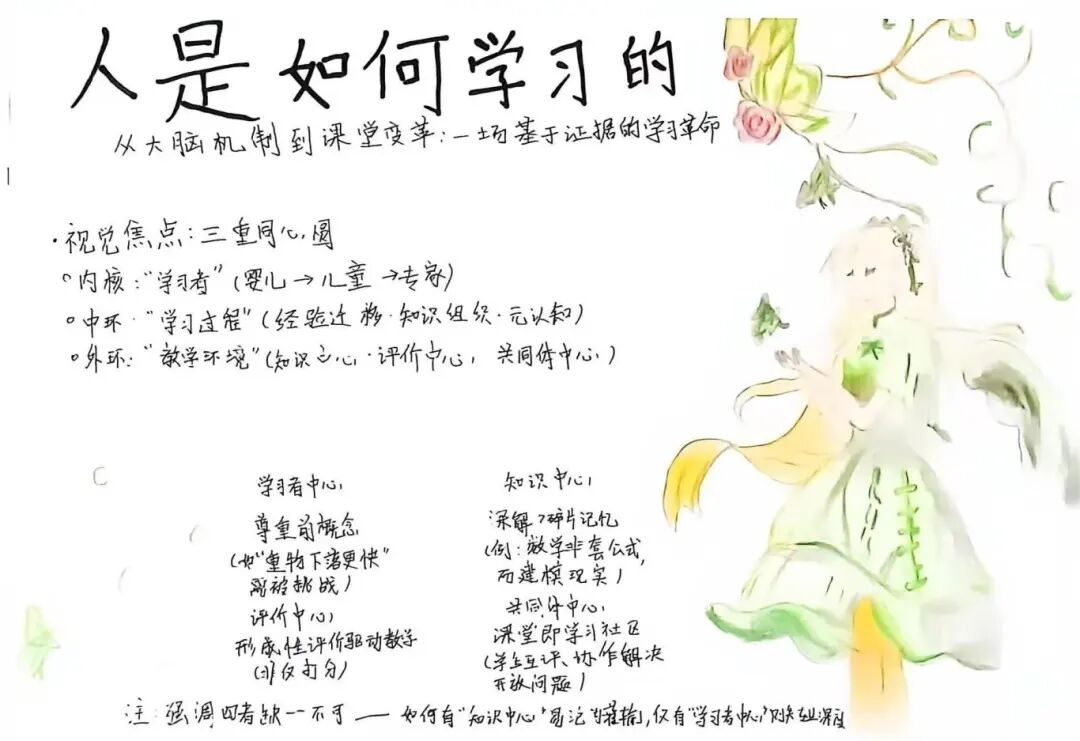 人是如何学习的
从大脑机制到课堂变革:一场基于证据的学习革命
·视觉焦点:三重同心圆
○内核:“学习者”(婴儿→儿童→专家)
○中环·“学习过程”(经验迁移·知识组织·元认知)
○外环:“教学环境”(知识中心·评价中心,共同体中心)
学习者中心
尊重前概念
(如“重物下落更快”
需被挑战)
评价中心
形成性评价驱动教学
(非仅打分)
知识中心
深解>碎片记忆
(例:数学非套公式,
而建模现实)
共同体中心
课堂即学习社区
(学生互评、协作解决
开放问题)
注:强调四者缺一不可——如何有“知识中心”易沦为灌输,仅有“学习者中心”则缺深度